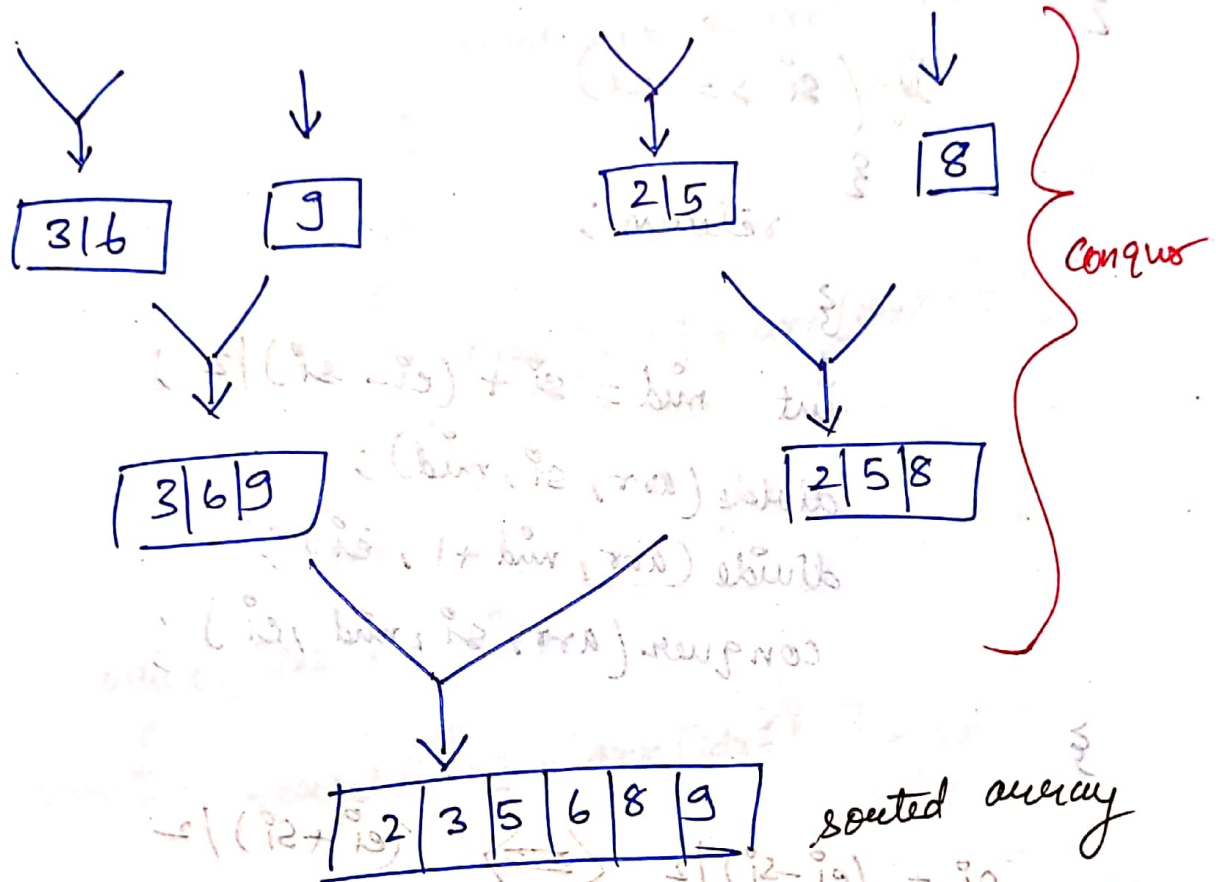 3|6
9
2|5
8
Conquer
3|6|9
2|5|8
2|3|5|6|8|9
sorted array